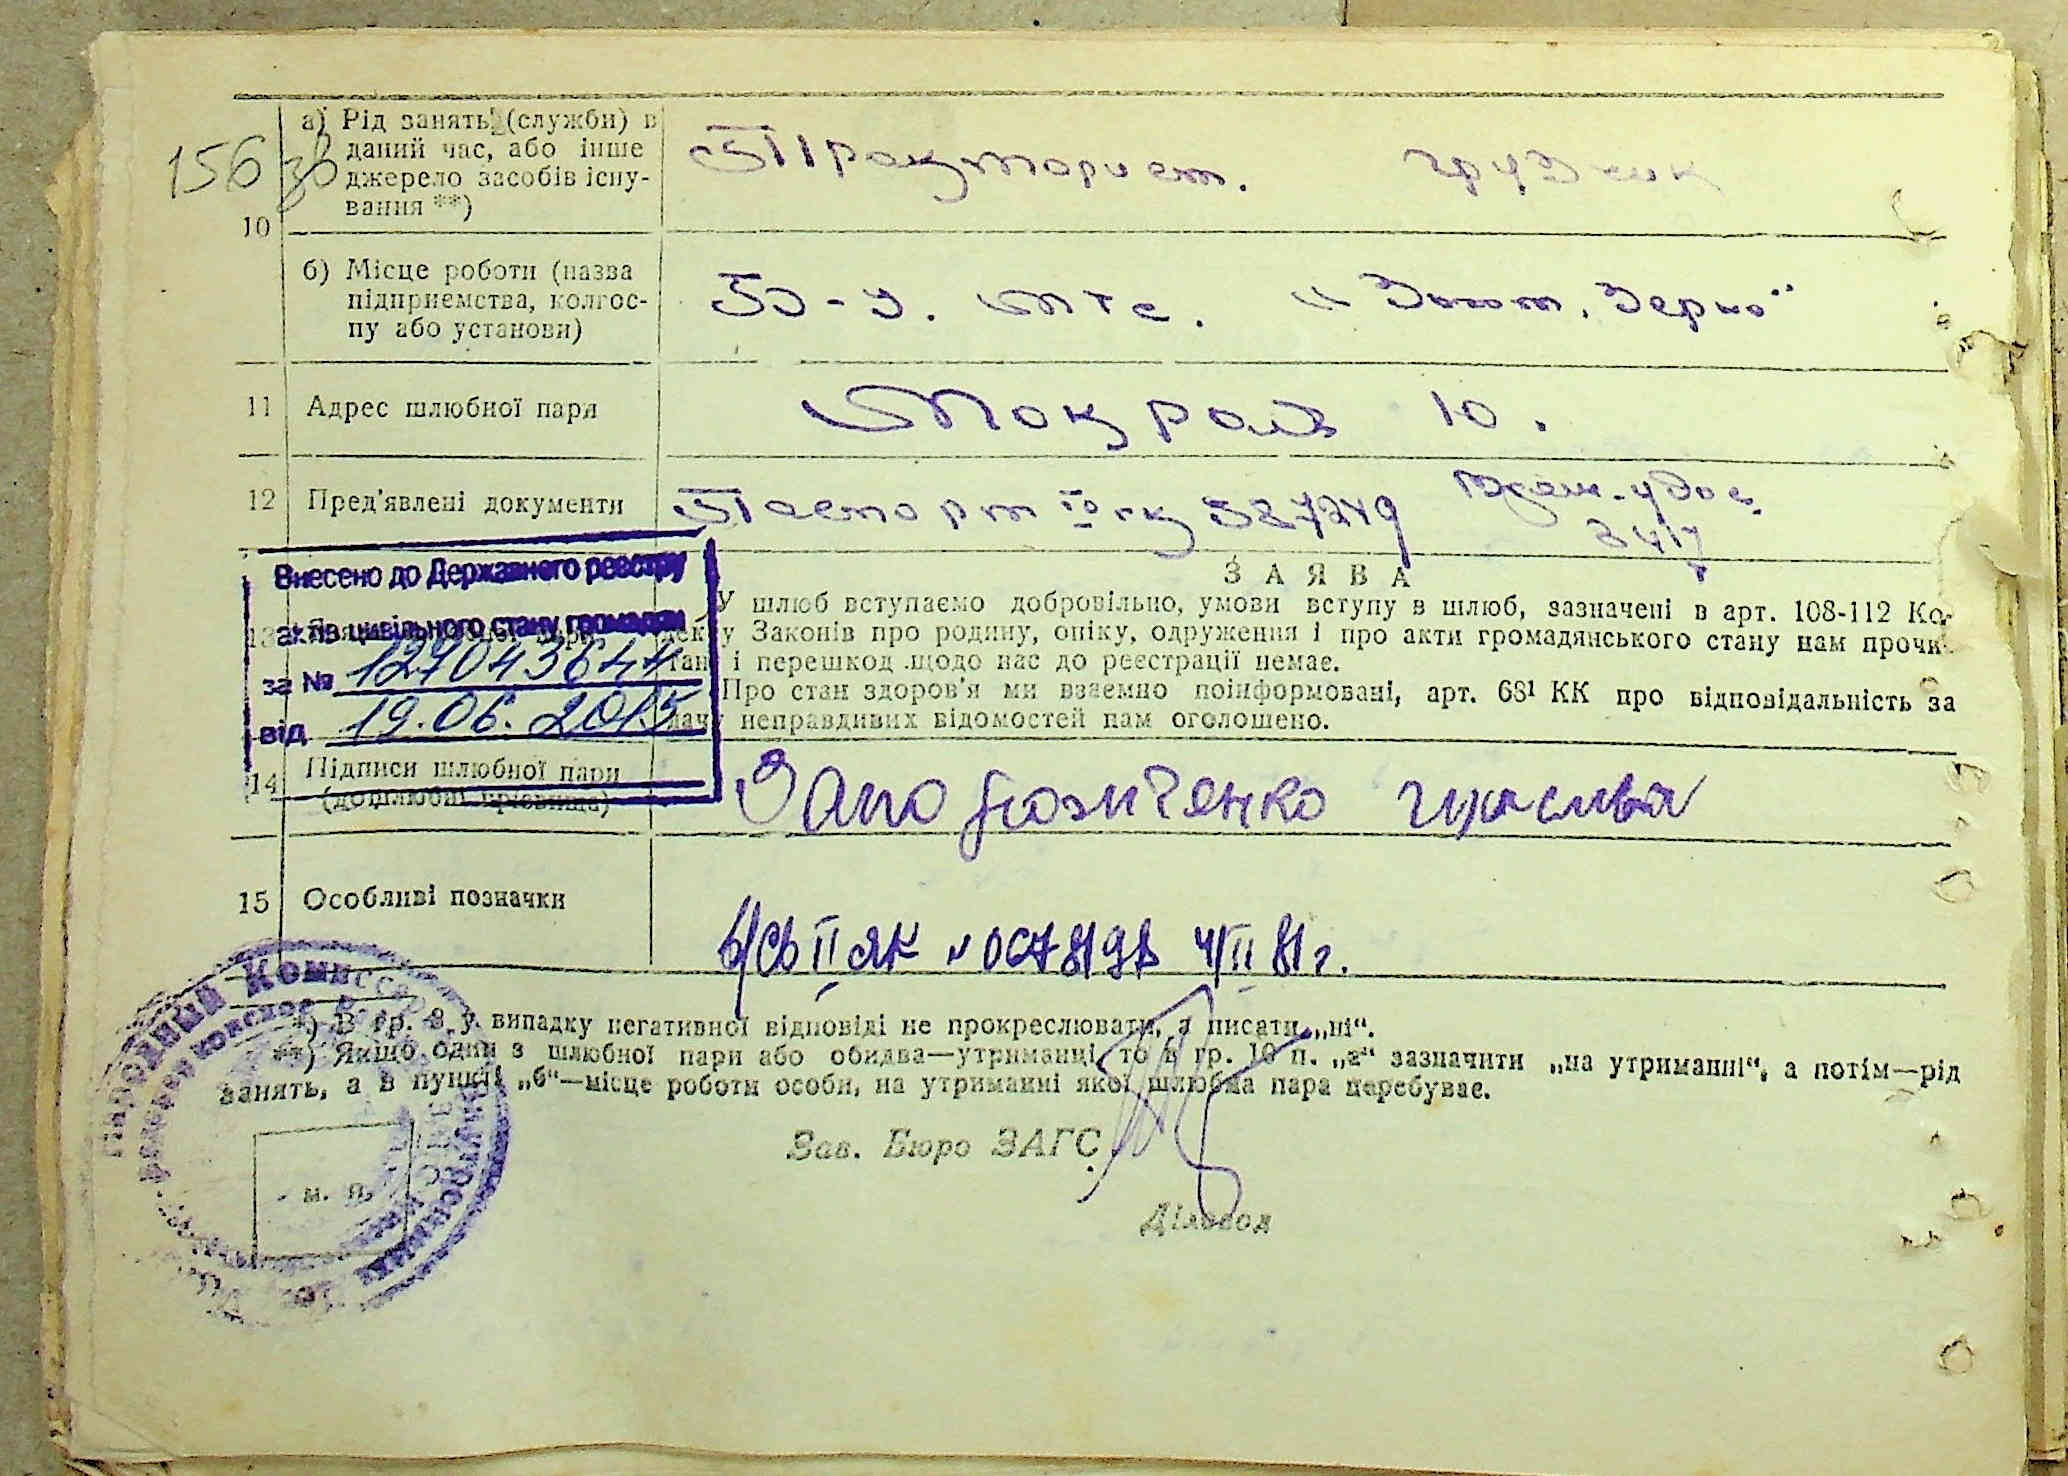 156 зв
10
а) Рід занять (служби) в
даний час, або інше
джерело засобів існу-
вання **)
Тракторист. грузчик
б) Місце роботи (назва
підприємства, колгос-
пу або установи)
МТС. „Золот. Зерно"
11 Адрес шлюбної паря
Мокрая 10.
12 Пред'явлені документи
Паспорт 587249
Врем. удос.
Внесено до Державного реєстру
актів цивільного стану громадян
за № 127043644
від 19.06.2015
13
ЗАЯВА
У шлюб вступаємо добровільно, умови вступу в шлюб, зазначені в арт. 108-112 Ко-
дексу Законів про родину, опіку, одруження і про акти громадянського стану нам прочи-
тані і перешкод щодо нас до реєстрації немає.
Про стан здоров'я ми взаємно поінформовані, арт. 68¹ КК про відповідальність за
дачу неправдивих відомостей нам оголошено.
14 Підписи шлюбної пари
(дошлюбні прізвища)
15 Особливі позначки
в/св II ЯК № 067819 4/II 81 г.
*) В гр. 8 у випадку негативної відповіді не прокреслювати, а писати „ні“.
**) Якщо один з шлюбної пари або обидва—утриманці, то в гр. 10 п. „а“ зазначити „на утриманні“, а потім—рід
занять, а в пункті „б“—місце роботи особи, на утриманні якої шлюбна пара перебуває.
Зав. Бюро ЗАГС
Діловод
м. п.
Народный Комисс